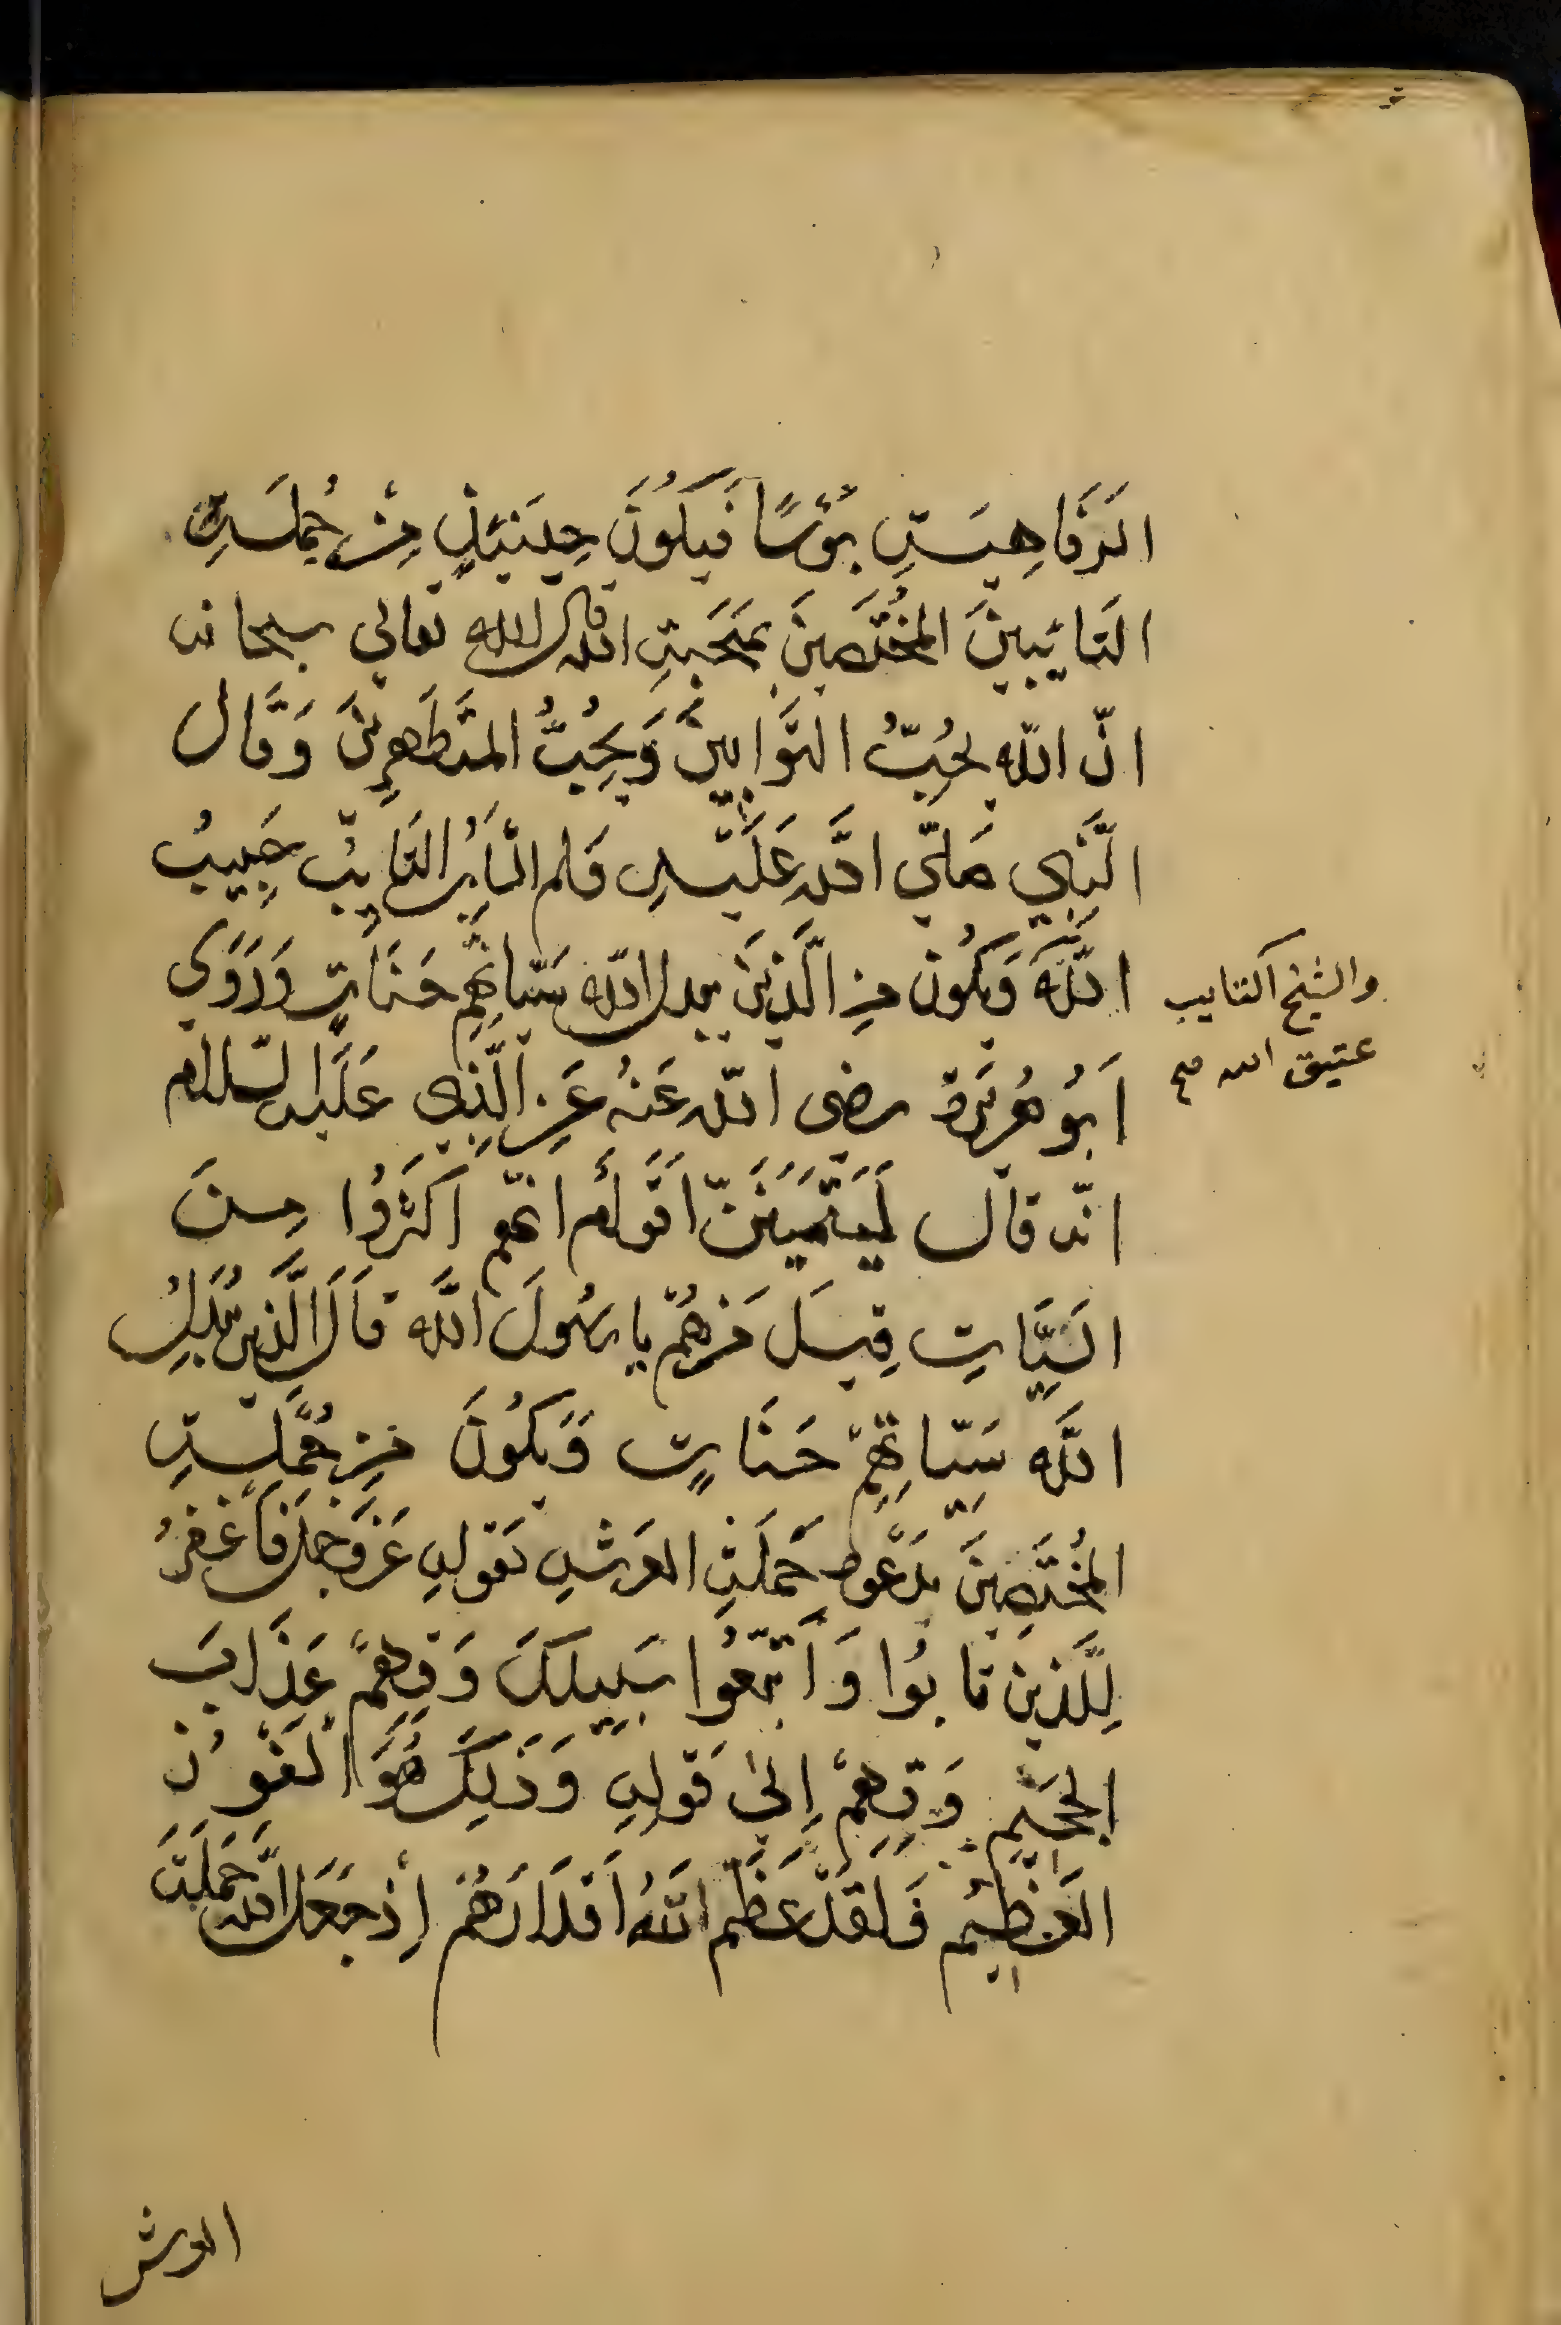 الرَفَاهِيَةِ بُؤسًا فَيَكُونَ حِينَئِذٍ مِنْ جُملَةِ
التَائِبِينَ المُخْتَصِينَ بمَحَبَتِ الله قال الله تعالي سبحانه
انّ اللّه يحُبّ التَوَّابِينَ وَيُحِبُّ المتَطَهِرِينَ وَقَال
النَّبِي صَلّي اللّه عَلَيْهِ وَسلم التَائِبُ حَبِيبُ
اللّهَ وَيَكُون مِن الَّذِينَ يبدل اللّه سَيّاتِهِم حَسَنَاتٍ وَرَوَي
والشيخ التايب
عتيق الله صح
اَبُو هُرَيْرَة رضي اللّه عَنْهُ عَنِ النَّبِي عَلَيه السّلام
انّه قال لَيَتَمَنَيَنّ اَقوَامٌ انّهم اَكثَرُوا مِنَ
السَيِّاتِ قِيلَ مَن هُمْ يا رسُولَ اللّه قَالَ الَّذِينَ يُبَدِلُ
اللّه سَيّاتِهِمْ حَسَنَاتٍ وَيَكُونَ مِن جُمْلَةِ
المُخْتَصِينَ بدَعْوة حَمَلَتِ العَرشِ بقَولِهِ عَزَ وَجَل فَاغْفِرْ
لِلَّذِينَ تابُوا وَاتَّبَعُوا سَبِيلَكَ وَقِهِمْ عَذَابَ
الجَحِيمِ وَقِهِمْ اِلَي قَولِهِ وَذَلِكَ هُوَ الْفَوْزُ
العَظِيمُ فَلَقَدْ عَظَّم اللّهُ اَقدَارَهُمْ اِذْ جَعَلَ اللّه حَمَلَتَ
العرش